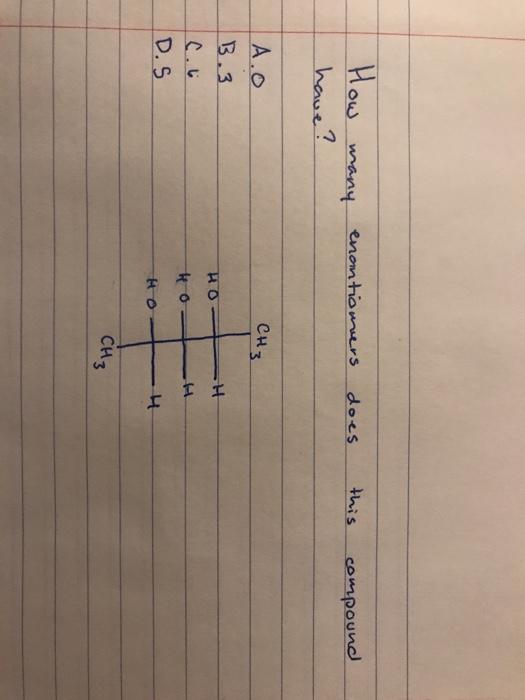 How many enantiomers does this compound
have?
A. 0
B. 3
C. 6
D. 5
CH3
HO H
HO H
HO H
CH3